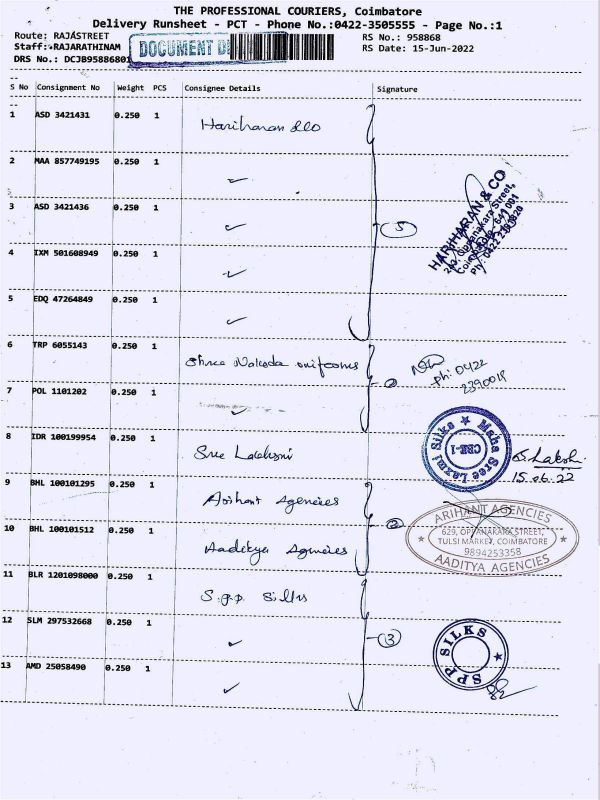 THE PROFESSIONAL COURIERS, Coimbatore
Delivery Runsheet - PCT - Phone No.:0422-3505555 - Page No.:1
Route: RAJASTREET
RS No.: 958868
Staff: RAJARATHINAM
DOCUMENT
RS Date: 15-Jun-2022
DRS No.: DCJB95886801
S No Consignment No Weight PCS Consignee Details Signature
1 ASD 3421431 0.250 1 Hariharan &co
2 MAA 857749195 0.250 1 ✓
3 ASD 3421436 0.250 1 ✓
5
HARIHARAN & CO
Oppanakara Street,
Coimbatore - 641 001
4 IXM 501608949 0.250 1 ✓
5 EDQ 47264849 0.250 1 ✓
6 TRP 6055143 0.250 1 Shree Nakoda uniforms
2
Ph: 0422
7 POL 1101202 0.250 1 ✓
8 IDR 100199954 0.250 1 Sree Lakshmi
Maha Sree Laxmi Silks
CBE-1
S. Laksh.
15.06.22
9 BHL 100101295 0.250 1 Arihant Agencies
2
10 BHL 100101512 0.250 1 Aaditya Agencies
ARIHANT AGENCIES
629, OPPANAKARA STREET,
TULSI MARKET, COIMBATORE
9894253358
AADITYA AGENCIES
11 BLR 1201098000 0.250 1 S.P.P Silks
12 SLM 297532668 0.250 1 ✓
3
SPP SILKS
13 AMD 25058490 0.250 1 ✓